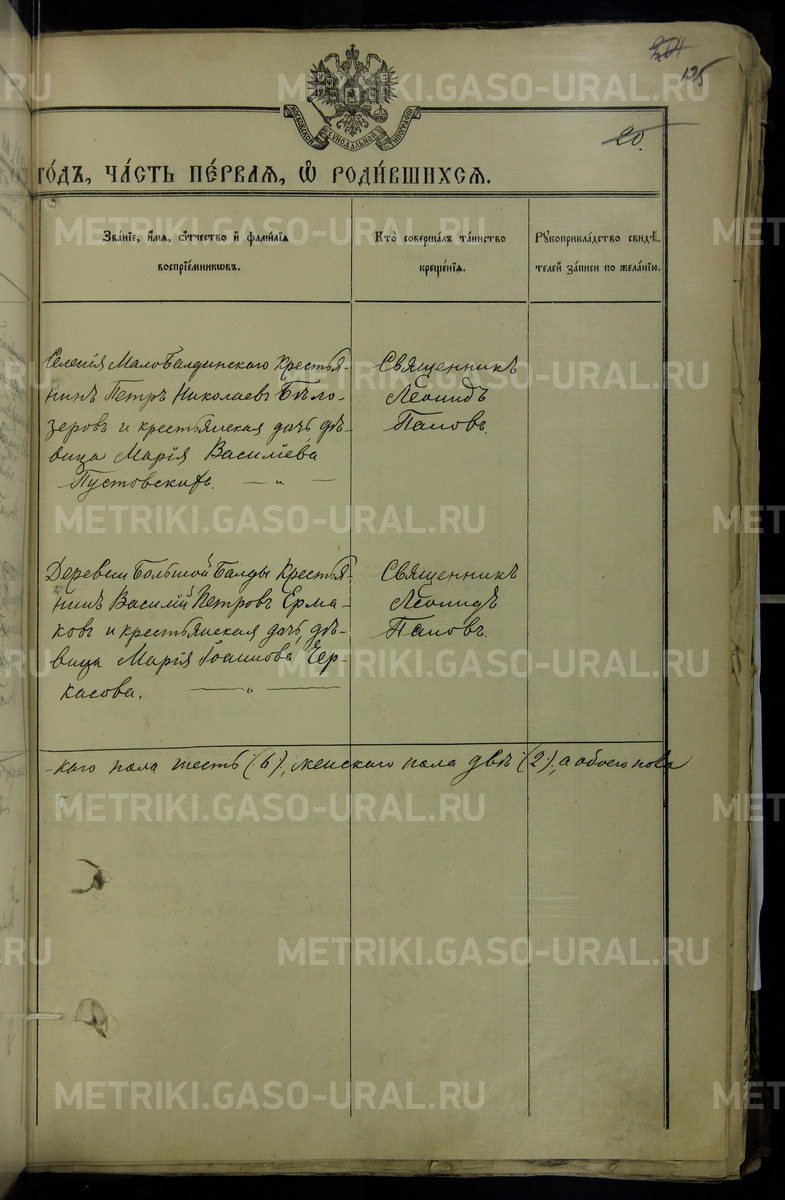 204
125
20.
МОСКОВСКОЙ СУНОДАЛЬНОЙ ТИПОГРАФІИ
ГО́ДЪ, ЧА́СТЬ ПЕ́РВАѦ, Ѽ РОДИ́ВШИХСѦ.
Зва́нїе, и́мѧ, ѻ҆́тчество и҆ фами́лїѧ
воспрїе́мникѡвъ.
Кто̀ соверша́лъ та́инство
креще́нїѧ.
Рꙋкоприкла́дство свидѣ́-
телей за́писи по жела́нїю.
Селенія Мало Балдинскаго крестья-
нинъ Петръ Николаевъ Бѣло-
зеровъ и крестьянская дочь дѣ-
вица Марія Василіева
Пустовскихъ. — „ —
Священникъ
Леонидъ
Поповъ.
Деревни Большой Балды крестья-
нинъ Василій Петровъ Ерма-
ковъ и крестьянская дочь, дѣ-
вица Марія Іоаннова Чер-
касова. — „ —
Священникъ
Леонидъ
Поповъ.
-каго пола шесть (6), женскаго пола двѣ (2), а обоего пола
METRIKI.GASO-URAL.RU